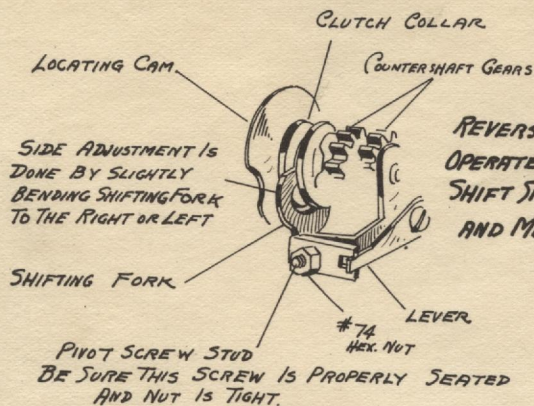 CLUTCH COLLAR
LOCATING CAM
COUNTERSHAFT GEARS
SIDE ADJUSTMENT IS
DONE BY SLIGHTLY
BENDING SHIFTING FORK
TO THE RIGHT OR LEFT
OPERATE
SHIFT
AND
SHIFTING FORK
LEVER
#74
HEX. NUT
PIVOT SCREW STUD
BE SURE THIS SCREW IS PROPERLY SEATED
AND NUT IS TIGHT.